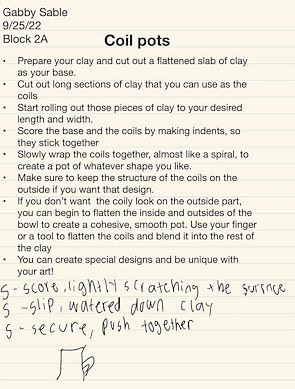 Gabby Sable
9/25/22
Block 2A
Coil pots
• Prepare your clay and cut out a flattened slab of clay
as your base.
• Cut out long sections of clay that you can use as the
coils
• Start rolling out those pieces of clay to your desired
length and width.
• Score the base and the coils by making indents, so
they stick together
• Slowly wrap the coils together, almost like a spiral, to
create a pot of whatever shape you like.
• Make sure to keep the structure of the coils on the
outside if you want that design.
• If you don't want the coily look on the outside part,
you can begin to flatten the inside and outsides of the
bowl to create a cohesive, smooth pot. Use your finger
or a tool to flatten the coils and blend it into the rest of
the clay
• You can create special designs and be unique with
your art!
S - score, lightly scratching the surface
S - slip, watered down clay
S - secure, push together